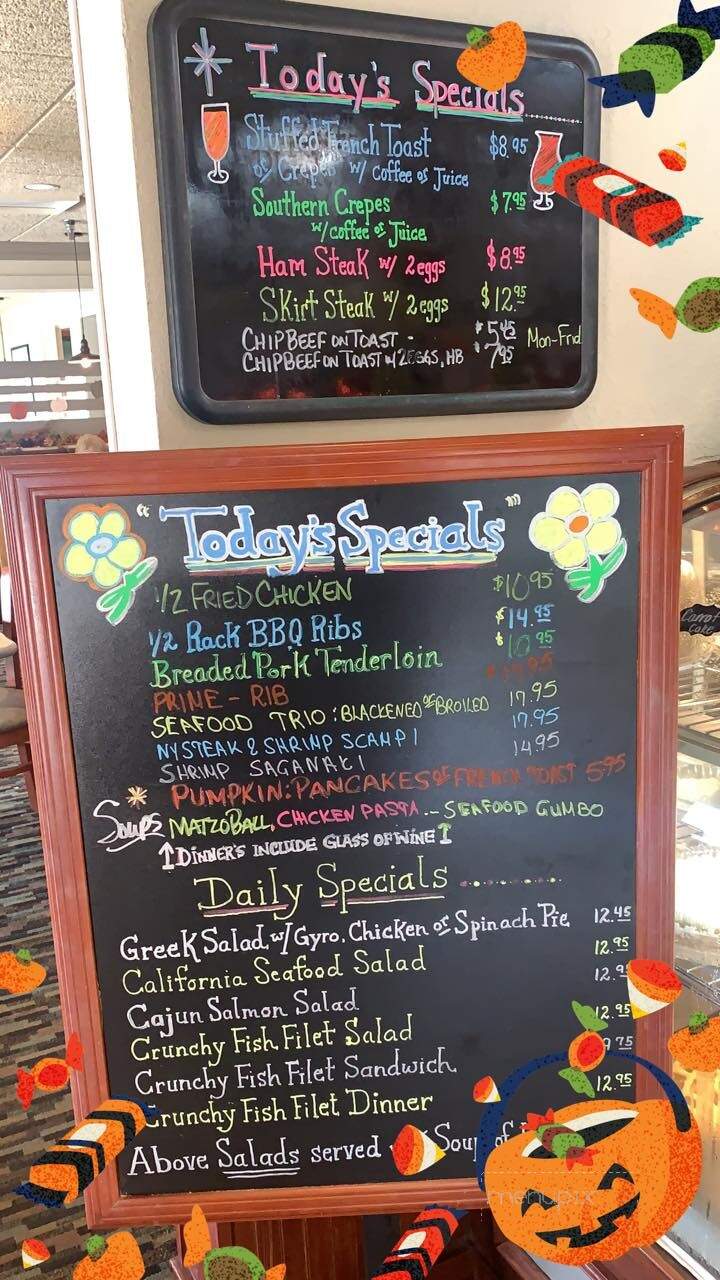 Today's Specials
Stuffed French Toast $8.95
or Crepes w/ coffee or Juice
Southern Crepes $7.95
w/coffee or Juice
Ham Steak w/ 2eggs $8.95
Skirt Steak w/ 2eggs $12.95
CHIP BEEF ON TOAST - $5.45 Mon-Frid
CHIP BEEF ON TOAST w/ 2 EGGS, HB 7.95
"Today's Specials"
1/2 FRIED CHICKEN $10.95
1/2 Rack BBQ Ribs $14.95
Breaded Pork Tenderloin $10.95
PRIME - RIB
SEAFOOD TRIO: BLACKENED or BROILED 17.95
NY STEAK & SHRIMP SCAMPI 17.95
SHRIMP SAGANAKI 14.95
* PUMPKIN: PANCAKES or FRENCH TOAST 5.95
Soups MATZO BALL, CHICKEN PASTA - SEAFOOD GUMBO
↑ DINNER'S INCLUDE GLASS OF WINE ↑
Daily Specials
Greek Salad, w/ Gyro, Chicken or Spinach Pie 12.45
California Seafood Salad 12.95
Cajun Salmon Salad 12.9
Crunchy Fish Filet Salad 12.95
Crunchy Fish Filet Sandwich 9.75
Crunchy Fish Filet Dinner 12.95
Above Salads served Soup of
Carrot
Cake
menupix